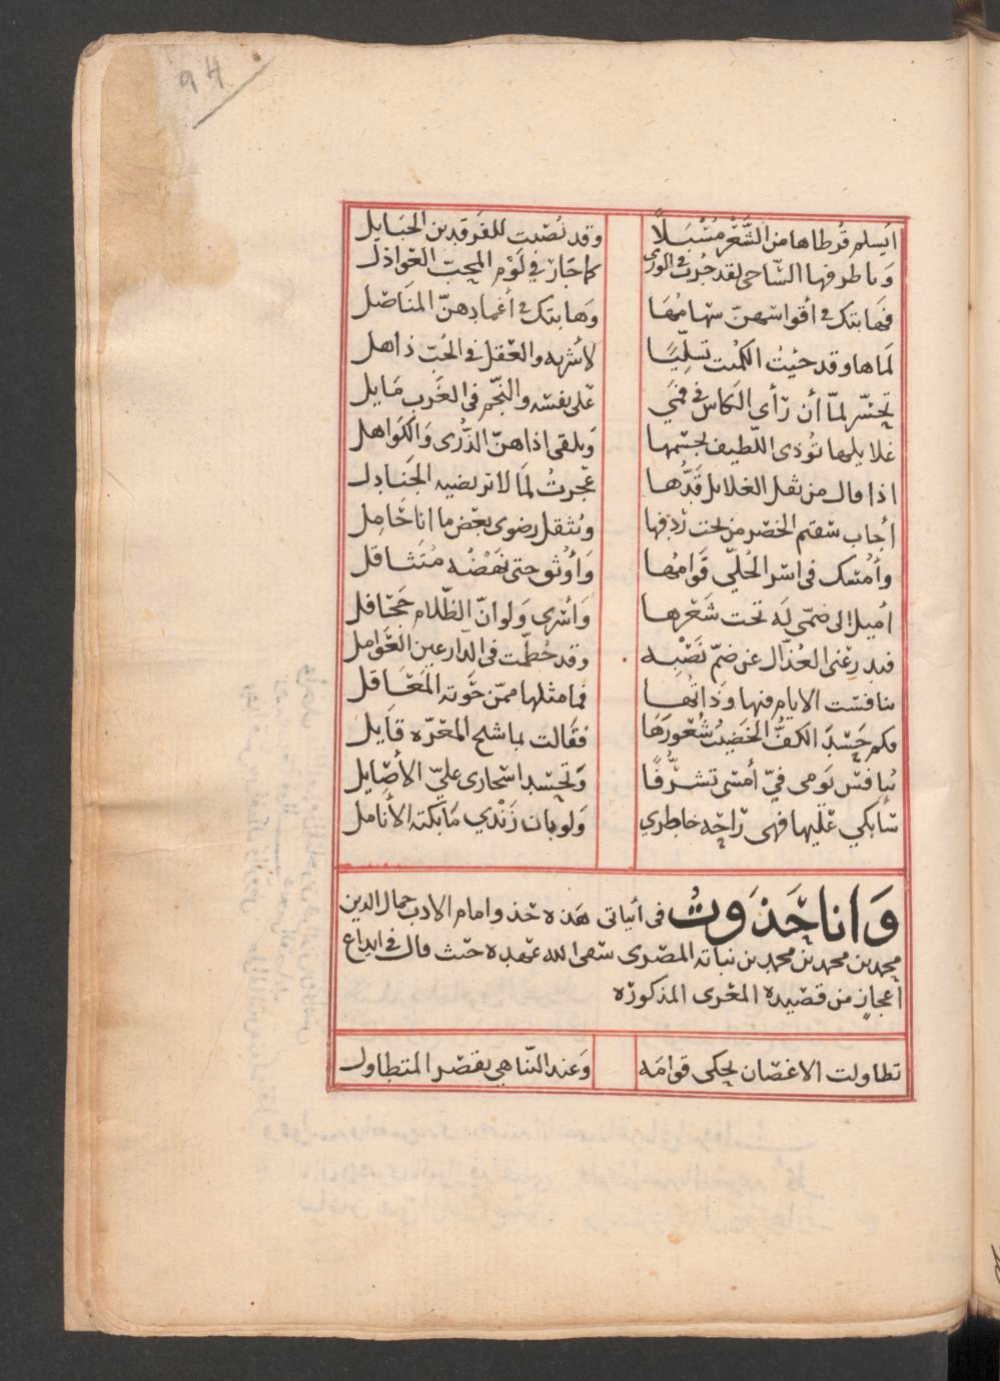 94
أيسلم قرطاها من الشَّعْر مُسْبَلًا وقد نُصبت للفرقدين الحبايل
وما طرفها الساحى لقد جُرت فى الورى كما جَاز في لَوْم المحبّ العَواذل
فهابتك فى أقواسهنّ سهامُها وَهابتك فى أغمادهنّ المنَاصل
لماها وقد حثيتُ الكمُت تسلّيًا لأشربه والعقل فى الحُبّ ذاهل
تحسّر لمّا أن رَأى الكاس فى فمَي على نفسه والنّجم فى الغَرب مَايل
غلايلها تُؤذى اللّطيف بجسمها وَيلقى اذاهنّ الذّرى وَالكواهل
اذا مال من ثقل الغلايل قَدّها عجزتُ لمَا لا تربضيه الجَنادل
أجاب سقم الخصر من تحت رِدفها ويُثقل رضوى بعض ما انا حَامل
وأمْسك فى اسر الحُلّي قَوامُها وَأوثق حتى نَهْضُه مُتَثاقل
اميل الى ضمّى لَه تحت شَعْرها وَأسرى وَلو انّ الظّلام جَحَافل
فيدرعنى العُذّال عن ضمّ نَصْبِه وقد حُطّمت فى الدارعين العَوامل
ينافست الايام منها وَذاتها فما مثلها ممّن حَوته المَعَاقل
وكم حَسَدَ الكفُّ الخَضيبُ شُعُورَهَا فقَالت بما شح المعَرّه قَايل
يُنافس يَومى فيّ أمسى تشرُّفًا وَتحسد اسحارى عليّ الأصَايل
سابكي عَليها فهى رَاحة خاطري وَلو بان زَنْدي مَا بكته الأنامل
وَانا حَذَوتُ فى أبياتى هَذه حَذو امام الادب جمال الدين
محمد بن محمد بن محمد بن نباته المصرى سقى الله عهده حيث قال فى ايداع
أعجاز من قصيدة المعرى المذكوره
تطاولت الاغصان يحكى قوامَه وَعند التّناهي يقصر المتطاول